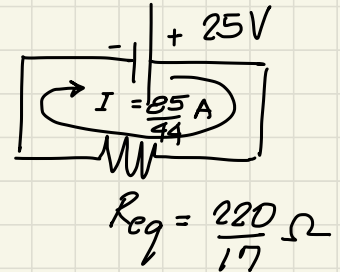 - + 25V
I = 85/44 A
Req = 220/17 Ω